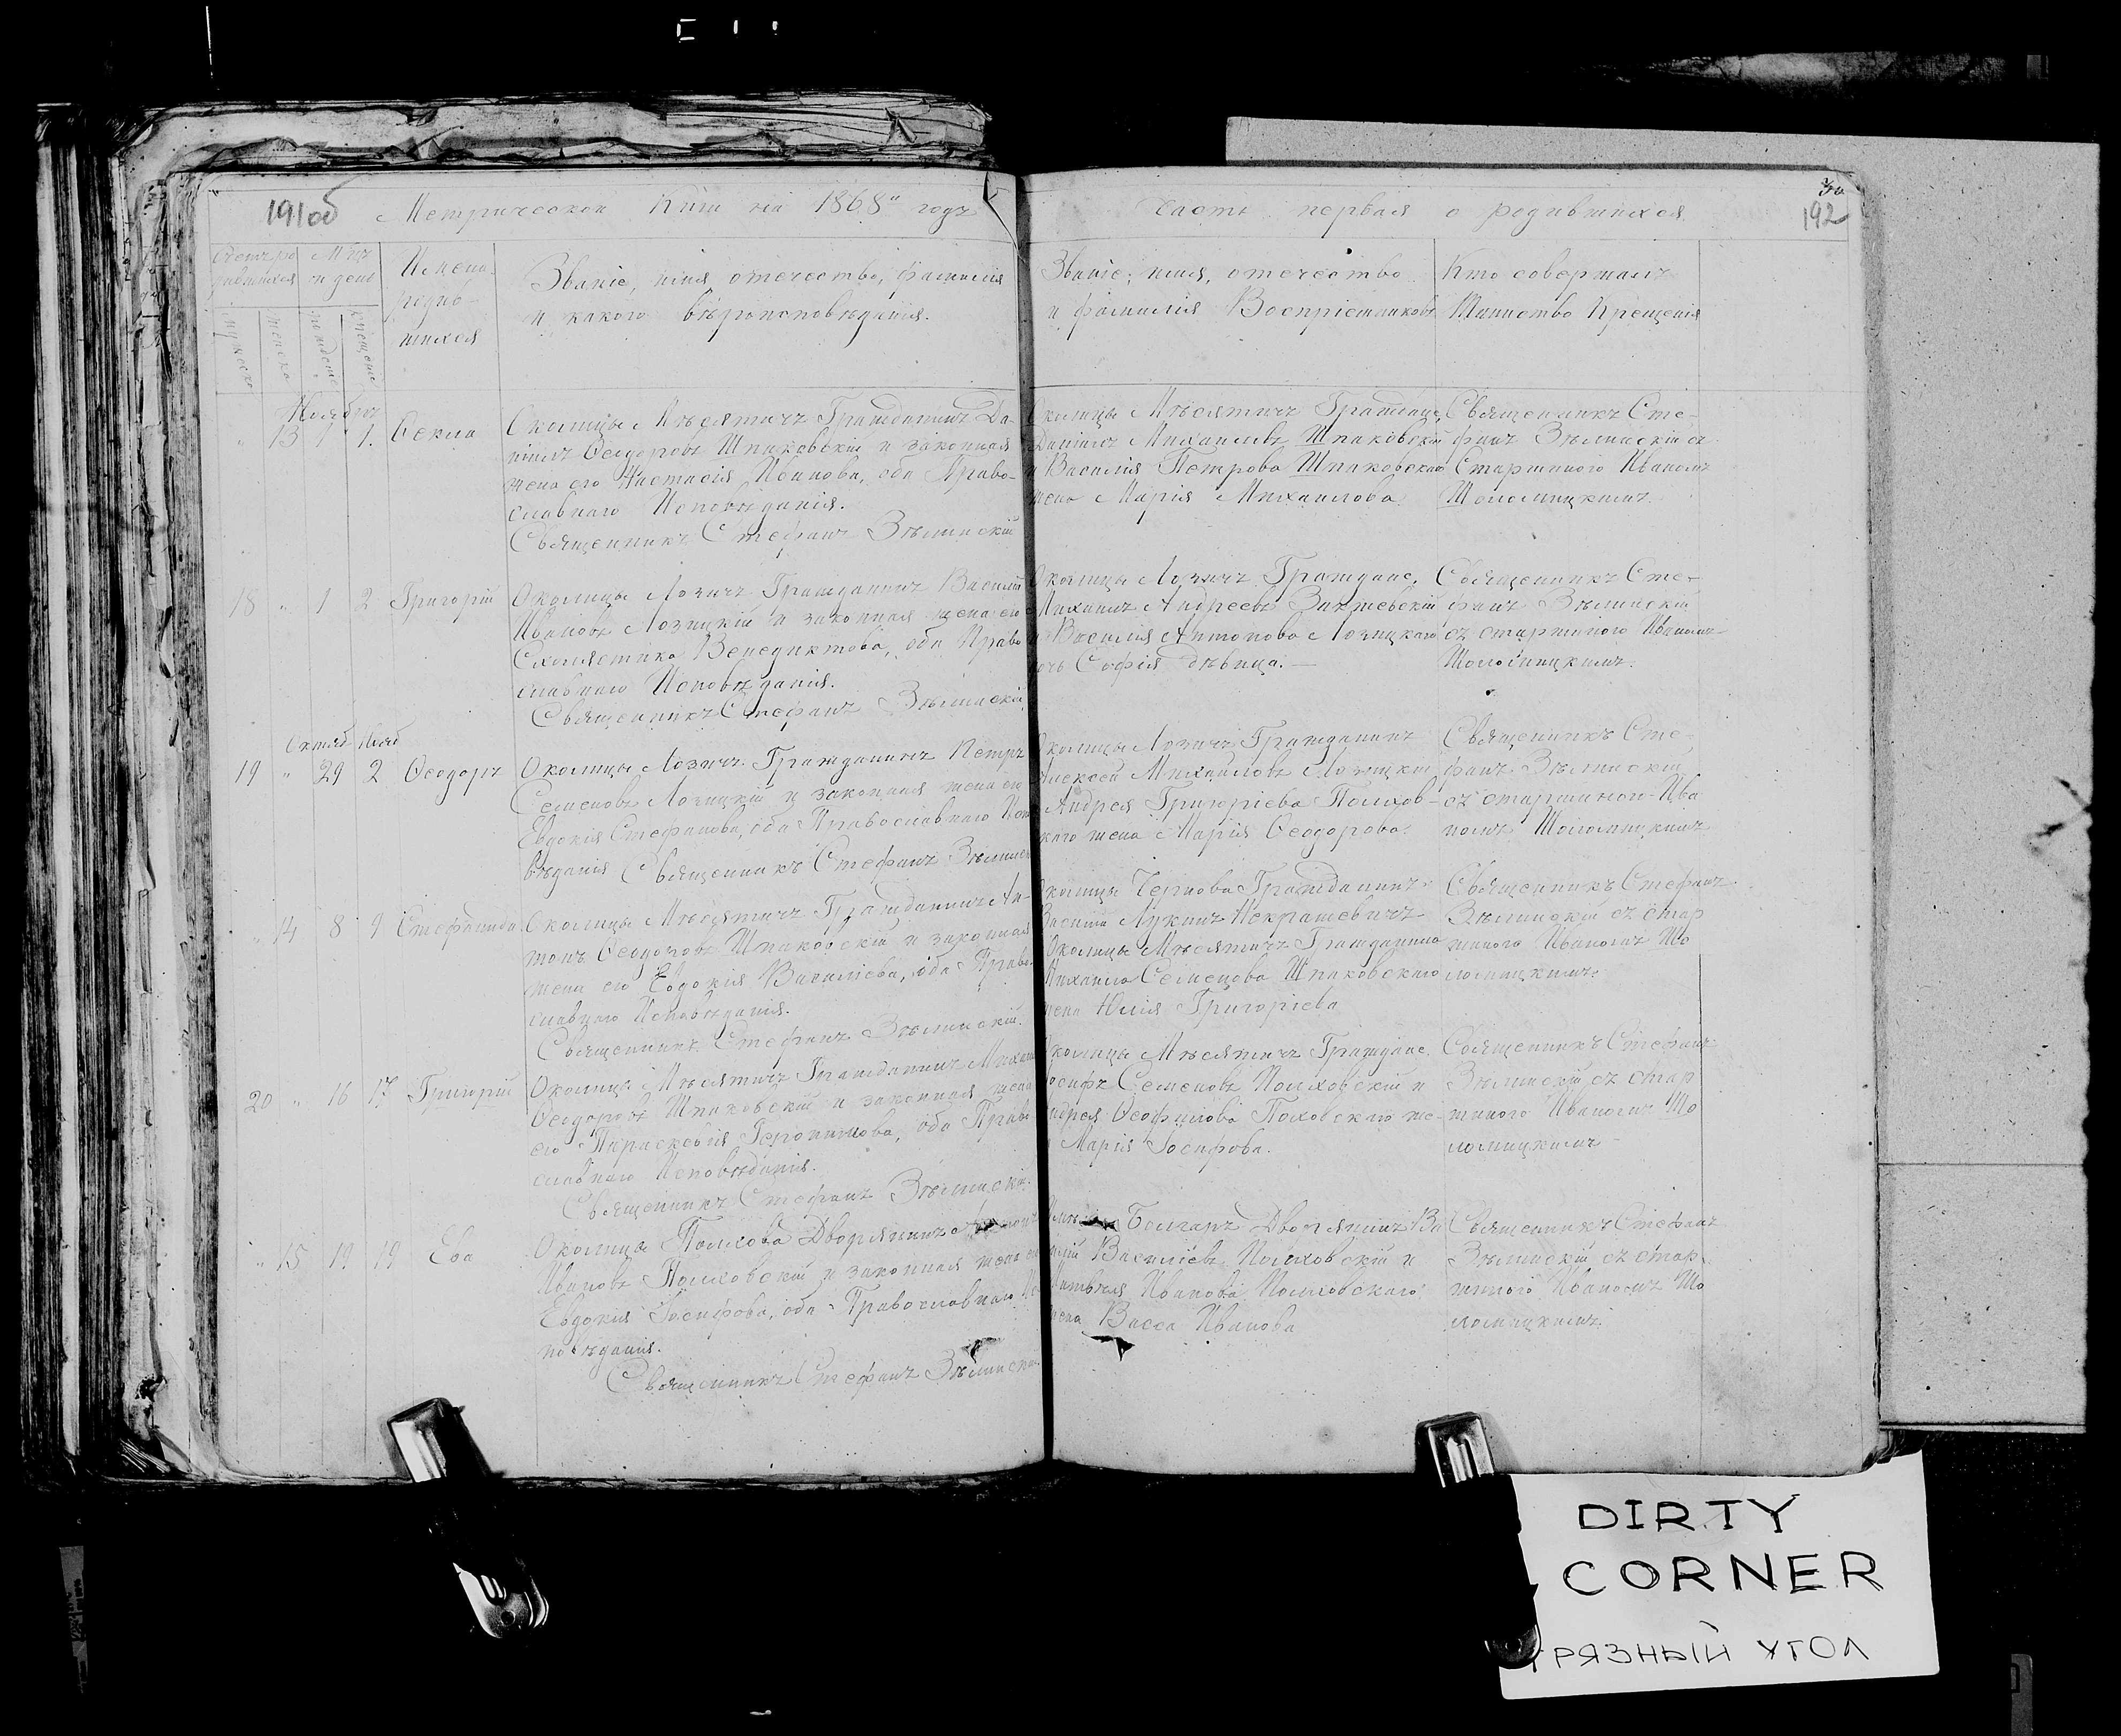 191об Метрической Книги на 1868 годъ
Часть первая о родившихся
192
Имена
родив-
шихся
Званіе, имя, отечество, фамилія
и какого вѣроисповѣданія.
Званіе, имя, отечество
и фамилія Воспріемниковъ
Кто совершалъ
Таинство Крещенія
Ноября
13 1 1. Ѳекла
Околицы Мѣсятичъ Гражданинъ Да-
ніилъ Ѳеодоровъ Шпаковскій и законная
жена его Анастасія Иванова, оба Право-
славнаго Исповѣданія.
Священникъ Стефанъ Зѣлинскій
Околицы Мѣсятичъ Граждане,
Даніилъ Михаиловъ Шпаковскій
и Василія Петрова Шпаковскаго
жена Марія Михаилова
Священникъ Сте-
фанъ Зѣлинскій съ
Старшиного Иваномъ
Шоломицкимъ.
18 " 1 2 Григорій
Околицы Лозичъ Гражданинъ Василій
Ивановъ Лозицкій и законная жена его
Схолястика Венедиктова, оба Право
славнаго Исповѣданія.
Священникъ Стефанъ Зѣлинскій
Околицы Лозичъ Граждане,
Михаилъ Андреевъ
и Василія Антонова Лозицкаго
дочь Софія дѣвица.
Священникъ Сте-
фанъ Зѣлинскій
съ старшиного Иваномъ
Шоломицкимъ.
Октяб Нояб
19 " 29 2 Ѳеодоръ
Околицы Лозичъ Гражданинъ Петръ
Семеновъ Лозицкій и законная жена его
Евдокія Стефанова, оба Православнаго Испо
вѣданія Священникъ Стефанъ Зѣлинск
Околицы Лозичъ Гражданинъ
Алексей Михаиловъ Лозицкій
Андрея Григоріева Полхов-
скаго жена Марія Ѳеодорова.
Священникъ Сте-
фанъ Зѣлинскій
съ старшиного Ива
номъ Шоломицкимъ
" 14 8 9 Стефанида
Околицы Мѣсятичъ Гражданинъ Ан-
тонъ Ѳеодоровъ Шпаковскій и законная
жена его Евдокія Василіева, оба Право
славнаго Исповѣданія.
Священникъ Стефанъ Зѣлинскій.
Околицы Чернова Гражданинъ
Василій Лукинъ Некрашевичъ
Околицы Мѣсятичъ Гражданина
Михаила Семенова Шпаковскаго
жена Юлія Григоріева
Священникъ Стефанъ
Зѣлинскій съ стар
шиного Иваномъ Шо
ломицкимъ.
20 " 16 17 Григорій
Околицы Мѣсятичъ Гражданинъ Михаилъ
Ѳеодоровъ Шпаковскій и законная жена
его Параскевія Іеронимова, оба Право
славнаго Исповѣданія.
Священникъ Стефанъ Зѣлинскій.
Околицы Мѣсятичъ Граждане,
Іосифъ Семеновъ Полховскій и
Андрея Ѳеофилова Полховскаго же-
Марія Іосифова.
Священникъ Стефанъ
Зѣлинскій съ стар
шиного Иваномъ Шо
ломицкимъ
" 15 19 19 Ева
Околицы Полхова Дворянинъ
Ивановъ Полховскій и законная жена его
Евдокія Іосифова, оба Православнаго Ис
повѣданія.
Священникъ Стефанъ Зѣлинскій
Болгаръ Дворянинъ Ва
силій Василіевъ Полховскій и
Матвѣя Иванова Полховскаго
жена Васса Иванова
Священникъ Стефанъ
Зѣлинскій съ стар
шиного Иваномъ Шо
ломицкимъ.
DIRTY
CORNER
ГРЯЗНЫЙ УГОЛ